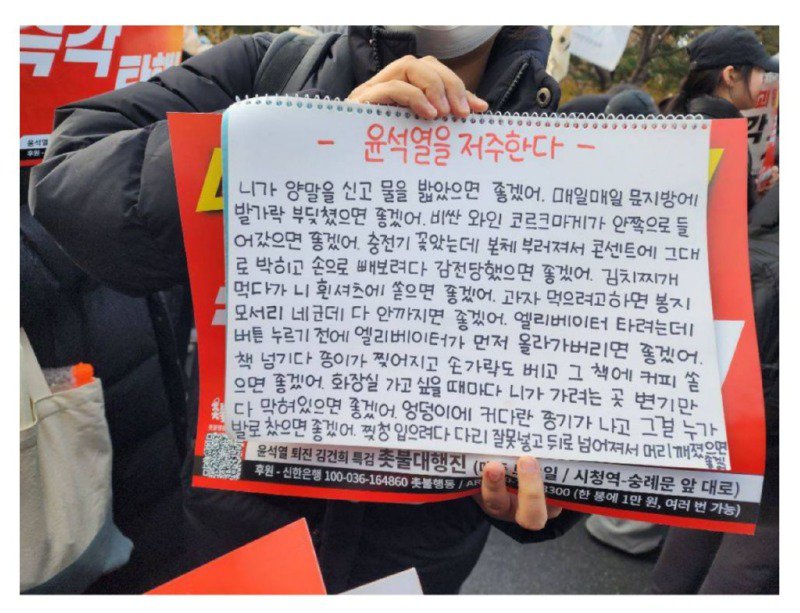 즉각
탄핵
- 윤석열을 저주한다 -
니가 양말을 신고 물을 밟았으면 좋겠어. 매일매일 문지방에
발가락 부딪혔으면 좋겠어. 비싼 와인 코르크마개가 안쪽으로 들
어갔으면 좋겠어. 충전기 꽂았는데 본체 부러져서 콘센트에 그대
로 박히고 손으로 빼보려다 감전당했으면 좋겠어. 김치찌개
먹다가 니 흰셔츠에 쏟으면 좋겠어. 과자 먹으려고하면 봉지
모서리 네군데 다 안까지면 좋겠어. 엘리베이터 타려는데
버튼 누르기 전에 엘리베이터가 먼저 올라가버리면 좋겠어.
책 넘기다 종이가 찢어지고 손가락도 베고 그 책에 커피 쏟
으면 좋겠어. 화장실 가고싶을 때마다 니가 가려는 곳 변기만
다 막혀있으면 좋겠어. 엉덩이에 커다란 종기가 나고 그걸 누가
발로 찼으면 좋겠어. 찢청 입으려다 다리 잘못넣고 뒤로 넘어져서 머리깨졌으면
좋겠
윤석열 퇴진 김건희 특검 촛불대행진 일 / 시청역-숭례문 앞 대로)
후원 - 신한은행 100-036-164860 촛불행동 / 3300 (한 통에 1만 원, 여러 번 가능)